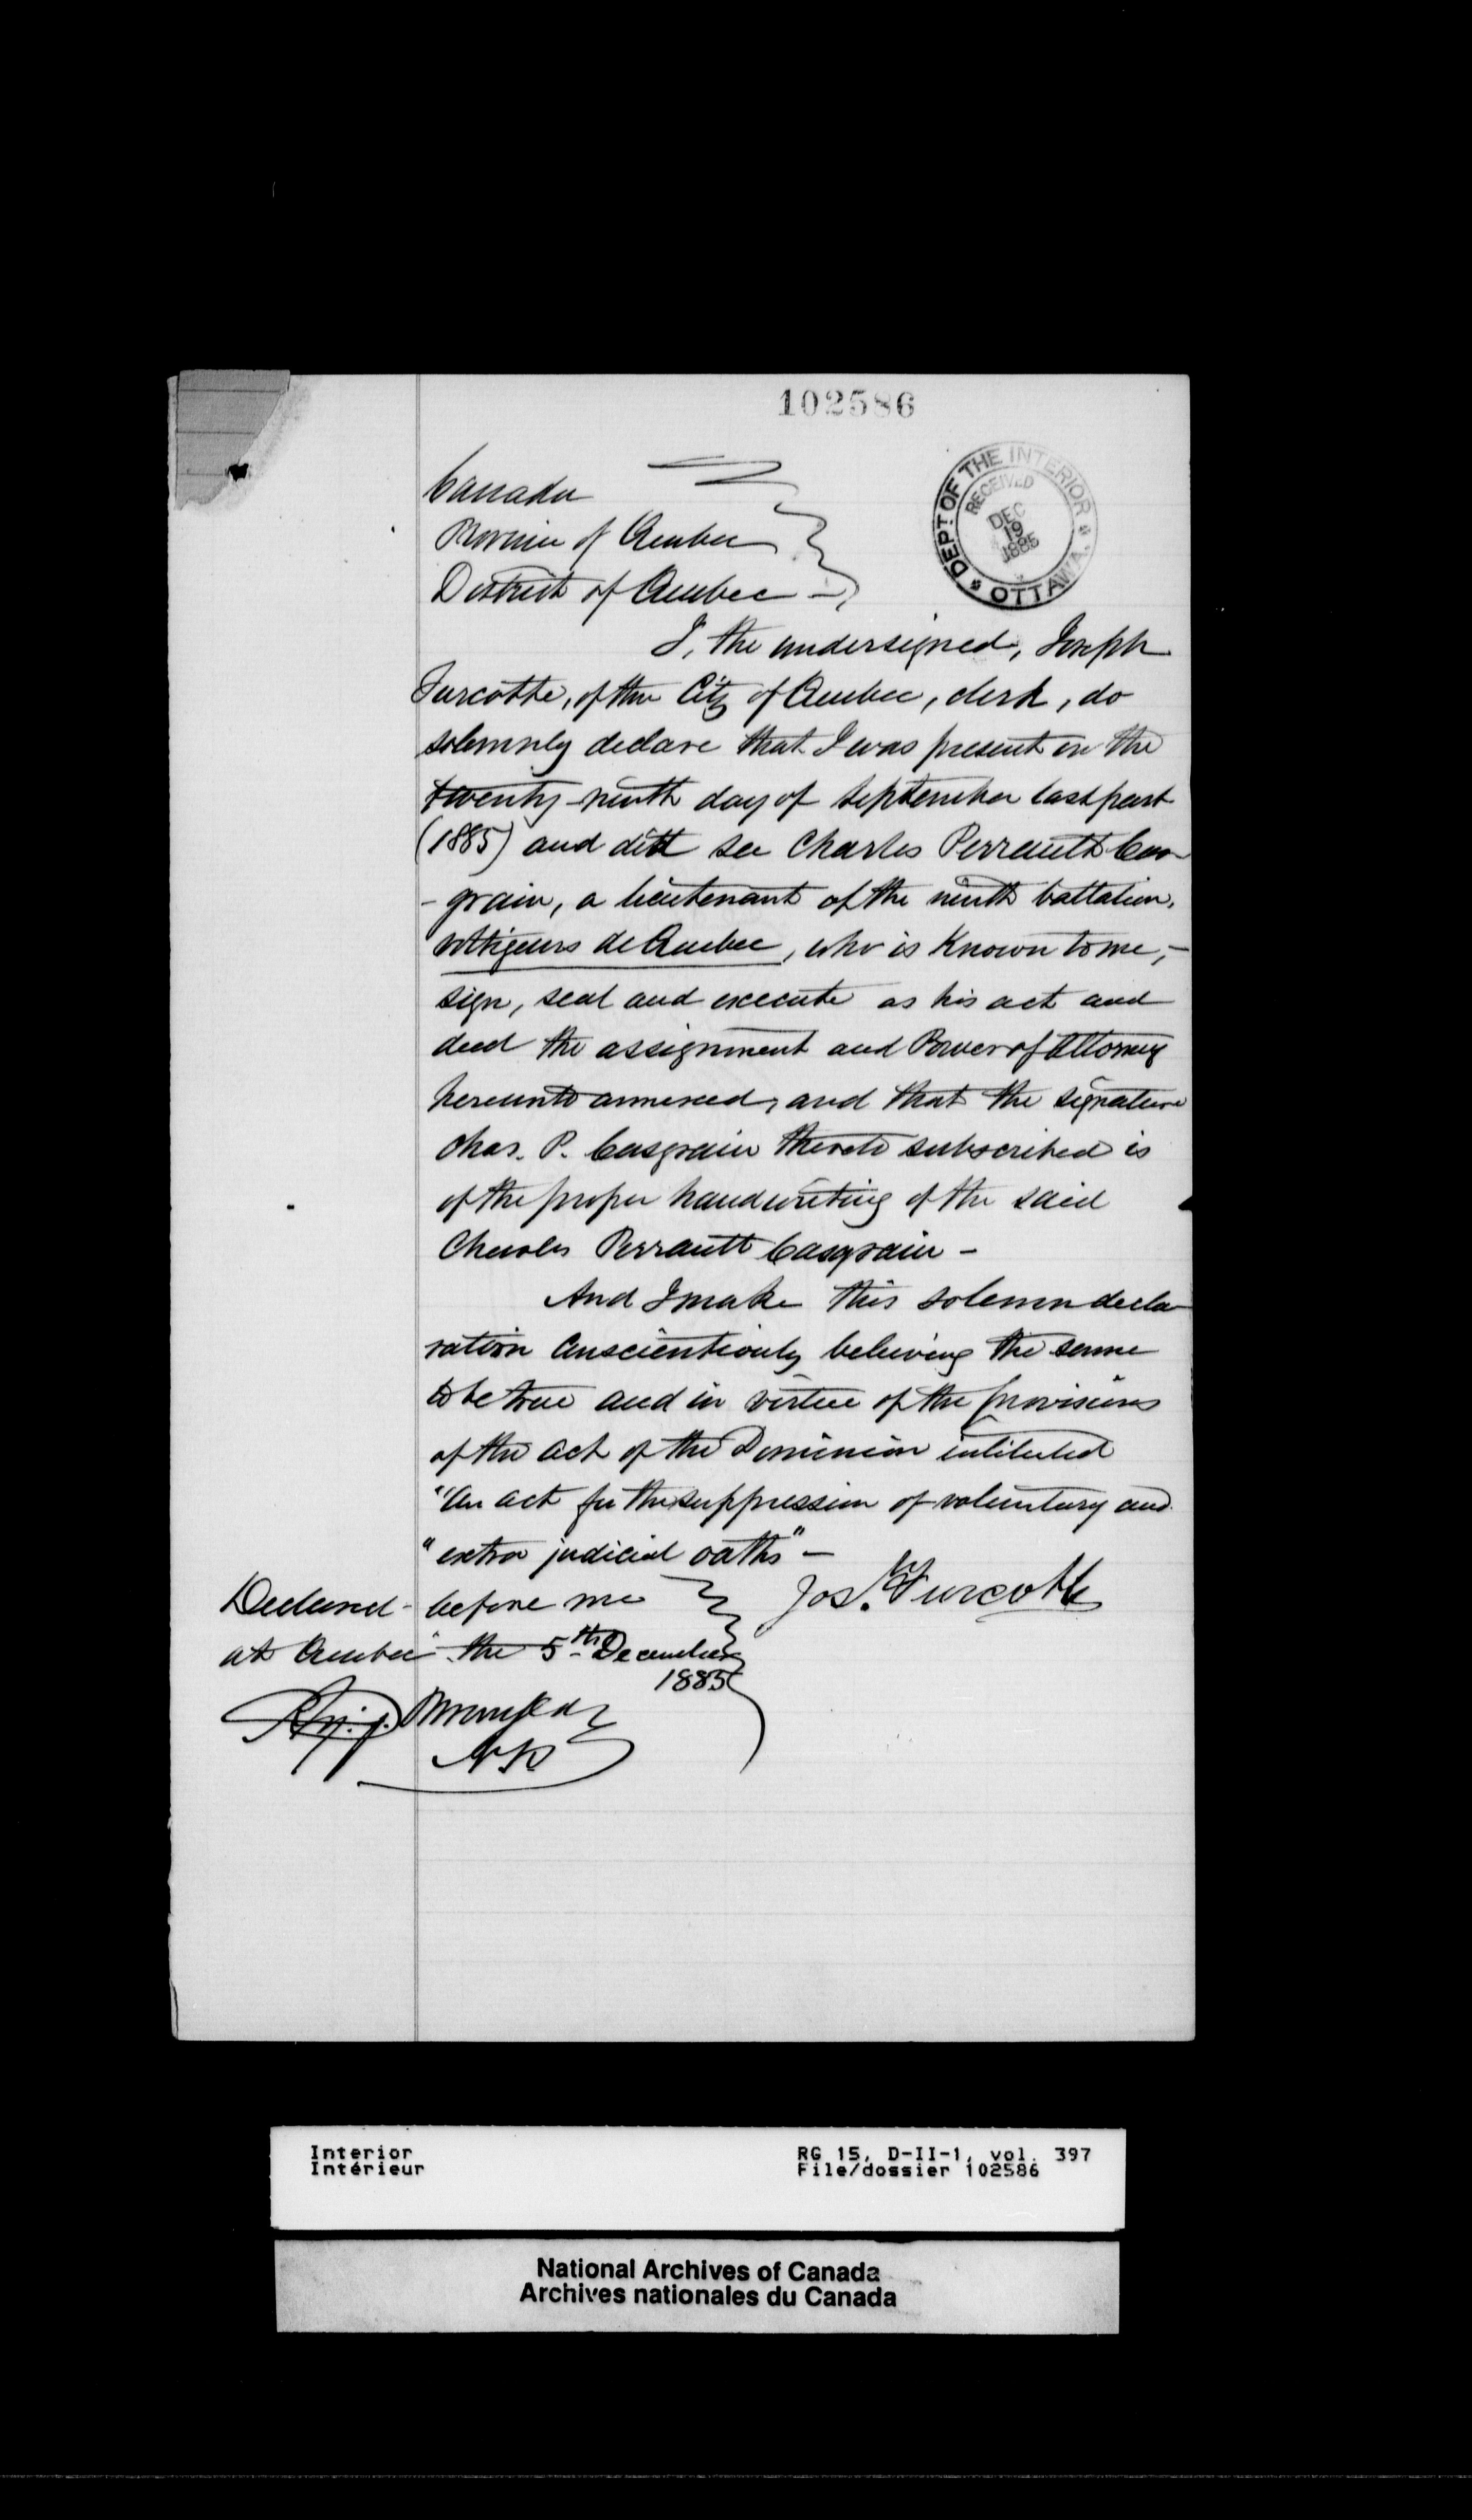 102586
DEPT OF THE INTERIOR
RECEIVED
DEC
19
1885
OTTAWA.
Canada
Province of Quebec
District of Quebec -
I, the undersigned, Joseph
Turcotte, of the City of Quebec, clerk, do
solemnly declare that I was present on the
twenty-ninth day of September last past
(1885) and did see Charles Perrault Cas-
- grain, a lieutenant of the ninth battalion,
voltigeurs de Quebec, who is known to me, -
sign, seal and execute as his act and
deed the assignment and Power of Attorney
hereunto annexed, and that the signature
Chas. P. Casgrain thereto subscribed is
of the proper handwriting of the said
Charles Perrault Casgrain -
And I make this solemn decla
ration conscientiously believing the same
to be true and in virtue of the provisions
of the act of the Dominion intituled
"An act for the suppression of voluntary and
"extra judicial oaths" -
Jos. Turcotte
Declared - before me
at Quebec - the 5th December
1885
N.P.
Interior
Intérieur
RG 15, D-II-1, vol. 397
File/dossier 102586
National Archives of Canada
Archives nationales du Canada